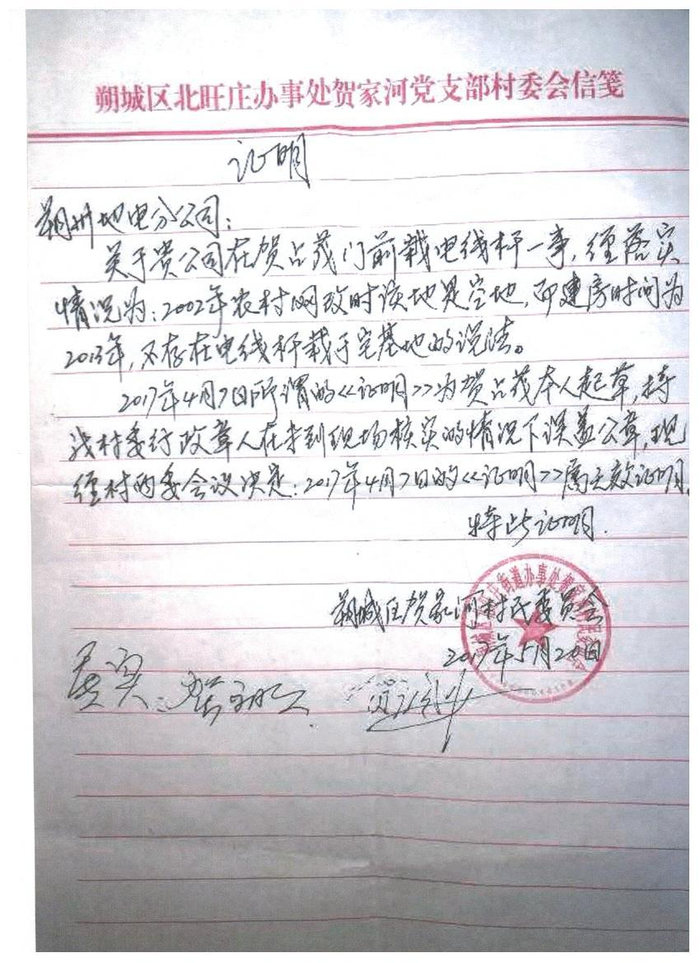 朔城区北旺庄办事处贺家河党支部村委会信笺
证明
朔州地电分公司：
关于贵公司在贺占茂门前栽电线杆一事，经落实
情况为：2002年农村网改时该地是空地，而建房时间为
2013年，不存在电线杆栽于宅基地的说法。
2017年4月7日所谓的《证明》为贺占茂本人起草，持
我村委行政章人在未到现场核实的情况下误盖公章，现
经村两委会议决定：2017年4月7日的《证明》属无效证明。
特此证明．
朔城区贺家河村民委员会
2017年5月20日
属实．